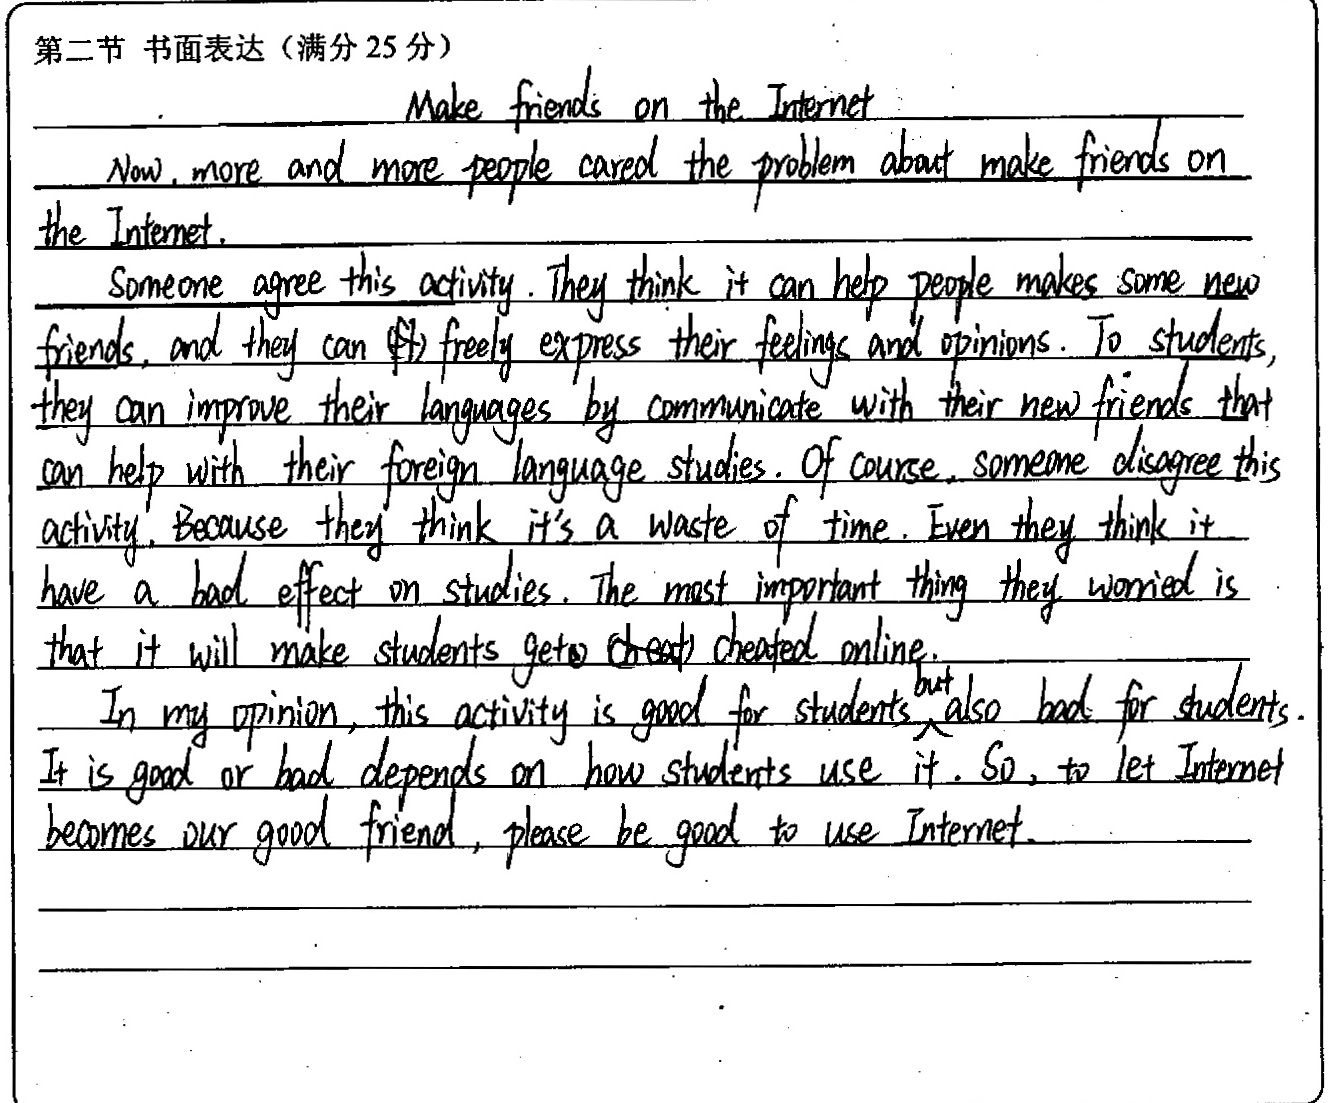 第二节 书面表达（满分25分）
Make friends on the Internet
Now, more and more people cared the problem about make friends on
the Internet.
Someone agree this activity. They think it can help people makes some new
friends, and they can freely express their feelings and opinions. To students,
they can improve their languages by communicate with their new friends that
can help with their foreign language studies. Of course, someone disagree this
activity. Because they think it's a waste of time. Even they think it
have a bad effect on studies. The most important thing they worried is
that it will make students get cheated online.
In my opinion, this activity is good for students but also bad for students.
It is good or bad depends on how students use it. So, to let Internet
becomes our good friend, please be good to use Internet.